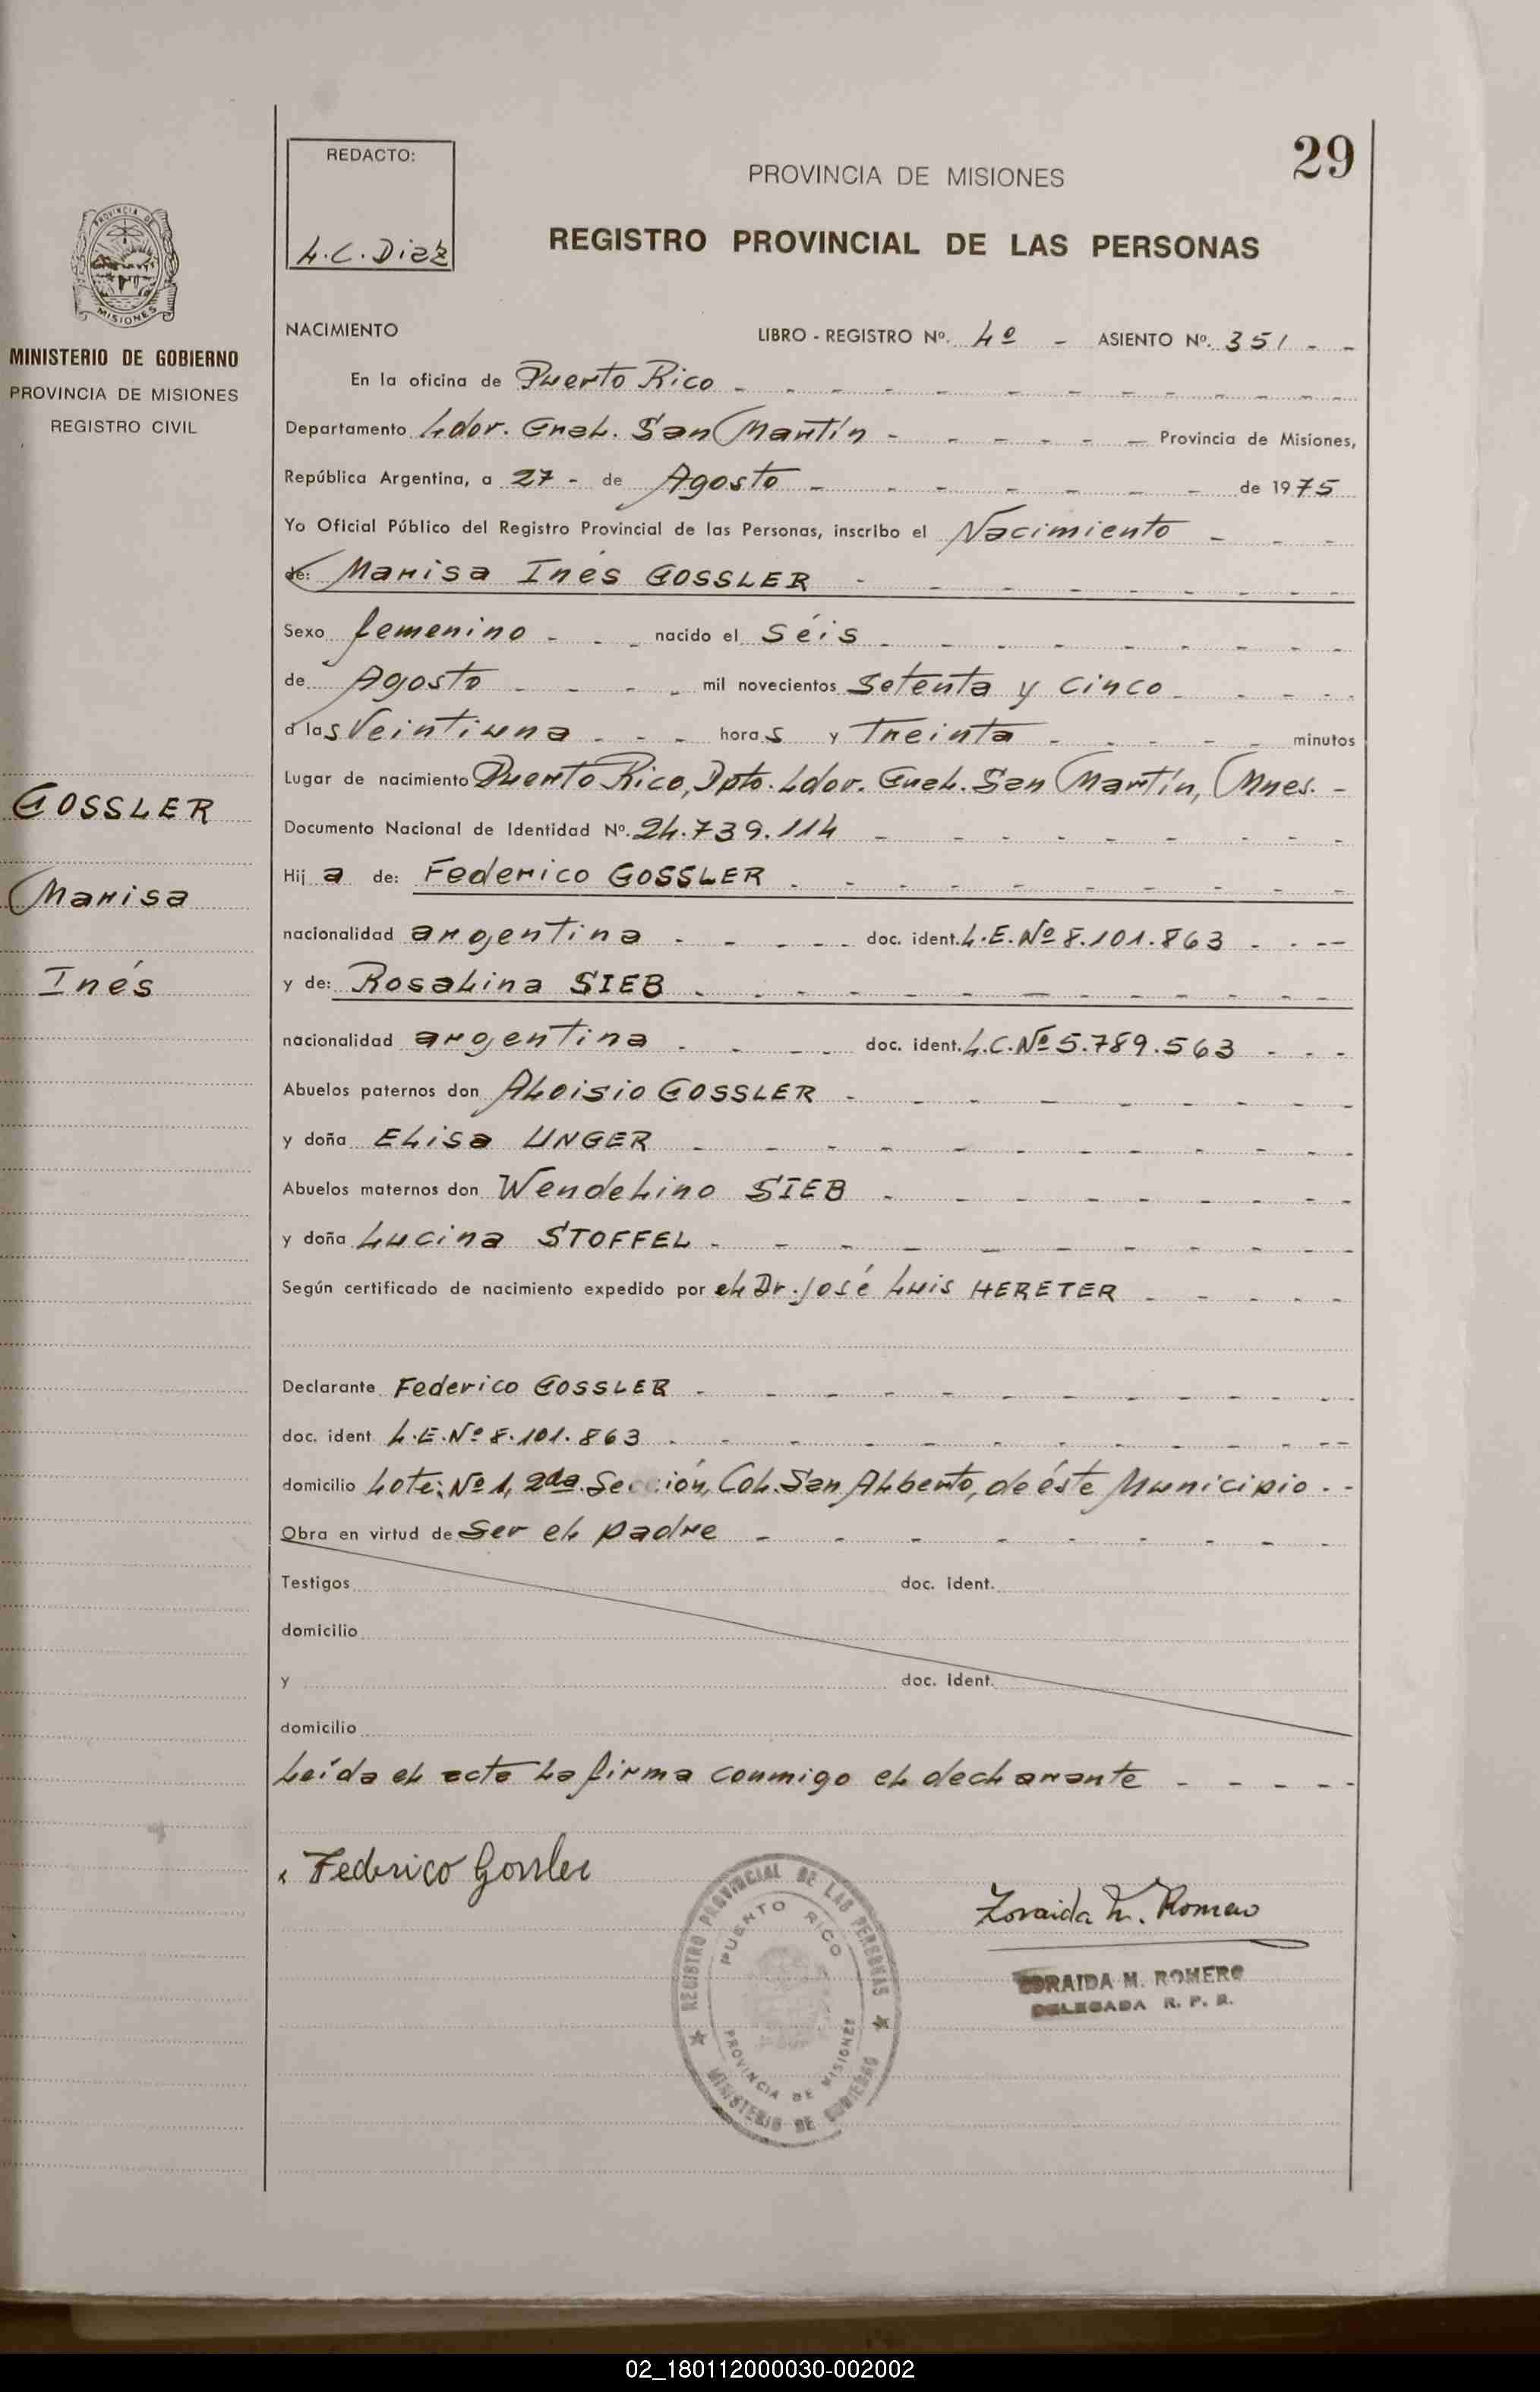 REDACTO:
L.C. Diaz
29
PROVINCIA DE MISIONES
REGISTRO PROVINCIAL DE LAS PERSONAS
PROVINCIA DE
MISIONES
MINISTERIO DE GOBIERNO
PROVINCIA DE MISIONES
REGISTRO CIVIL
NACIMIENTO LIBRO - REGISTRO Nº. 4º - ASIENTO Nº. 351 - -
En la oficina de Puerto Rico -
Departamento Ldor. Gral. San Martín - Provincia de Misiones,
República Argentina, a 27 - de Agosto - de 1975
Yo Oficial Público del Registro Provincial de las Personas, inscribo el Nacimiento -
de: Marisa Inés GOSSLER -
Sexo femenino - nacido el Séis -
de Agosto - mil novecientos Setenta y cinco -
a las Veintiuna - horas y Treinta - minutos
Lugar de nacimiento Puerto Rico, Dpto. Ldor. Gral. San Martín, Mnes. -
Documento Nacional de Identidad Nº. 24.739.114 -
Hija de: Federico GOSSLER -
nacionalidad argentina - doc. ident. L.E.Nº 8.101.863 -
y de: Rosalina SIEB -
nacionalidad argentina - doc. ident. L.C.Nº 5.789.563 -
Abuelos paternos don Aloisio GOSSLER -
y doña Elisa UNGER -
Abuelos maternos don Wendelino SIEB -
y doña Lucina STOFFEL -
Según certificado de nacimiento expedido por el Dr. José Luis HERETER -
Declarante Federico GOSSLER -
doc. ident L.E.Nº 8.101.863 -
domicilio Lote: Nº 1, 2da. Sección, Col. San Alberto, de éste Municipio. -
Obra en virtud de Ser el padre -
Testigos doc. ident.
domicilio
y doc. ident.
domicilio
Leída el acta la firma conmigo el declarante -
GOSSLER
Marisa
Inés
Federico Gossler
REGISTRO PROVINCIAL DE LAS PERSONAS
MINISTERIO DE GOBIERNO
PUERTO RICO
PROVINCIA DE MISIONES
Zoraida M. Romero
ZORAIDA M. ROMERO
DELEGADA R. P. P.
02_180112000030-002002